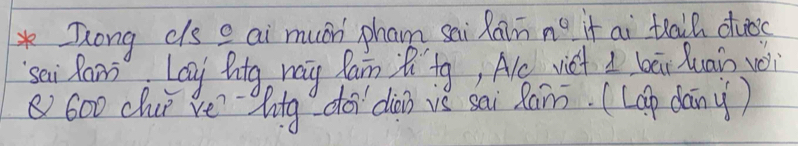 * Trong c/s o ai muốn phạm sai lầm nº ít ai tránh được
sai lầm. Lấy htg này làm tg, A/c viết 1 bài luận với
600 chữ về htg đối diện vs sai lầm. (Lập dàn ý)